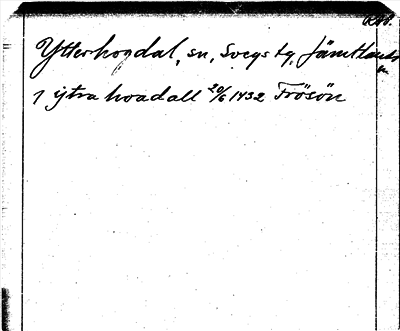 Ytterhogdal, sn, Svegs tg, Jämtlands
l.
J ýtra hoadall 20/6 1432 Frösön